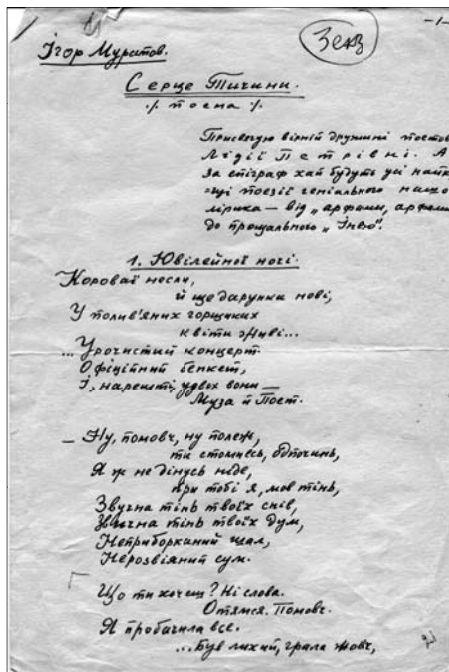 -1-
3 екз
Ігор Муратов.
Серце Тичини.
·/. поема ·/.
Присвячую вірній дружині поетов
Лідії Петрівні. А
за епіграф хай будуть усі найкр
щі поезії геніального нашо
лірика — від „арфами, арфами
до прощального „Інею".
1. Ювілейної ночі.
Короваї несли,
й ще дарунки нові,
У полив'яних горщиках
квіти живі...
...Урочистий концерт.
Офіційний бенкет,
І, нарешті, удвох вони —
Муза й Поет.
— Ну, помовч, ну полеж,
ти стомивсь, відпочинь,
Я ж не дінусь ніде,
при тобі я, мов тінь,
Звучна тінь твоїх снів,
тінь твоїх дум,
Неприборканий шал,
Нерозвіяний сум.
Що ти хочеш? Ні слова.
Отямся. Помовч.
Я пробачила все.
...Був лихий, грала жовч,